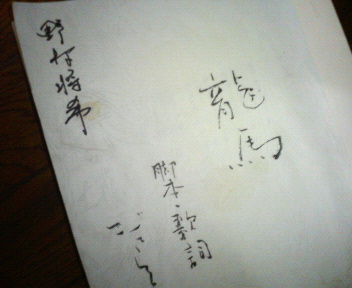 龍馬
脚本・歌詞
野村将希